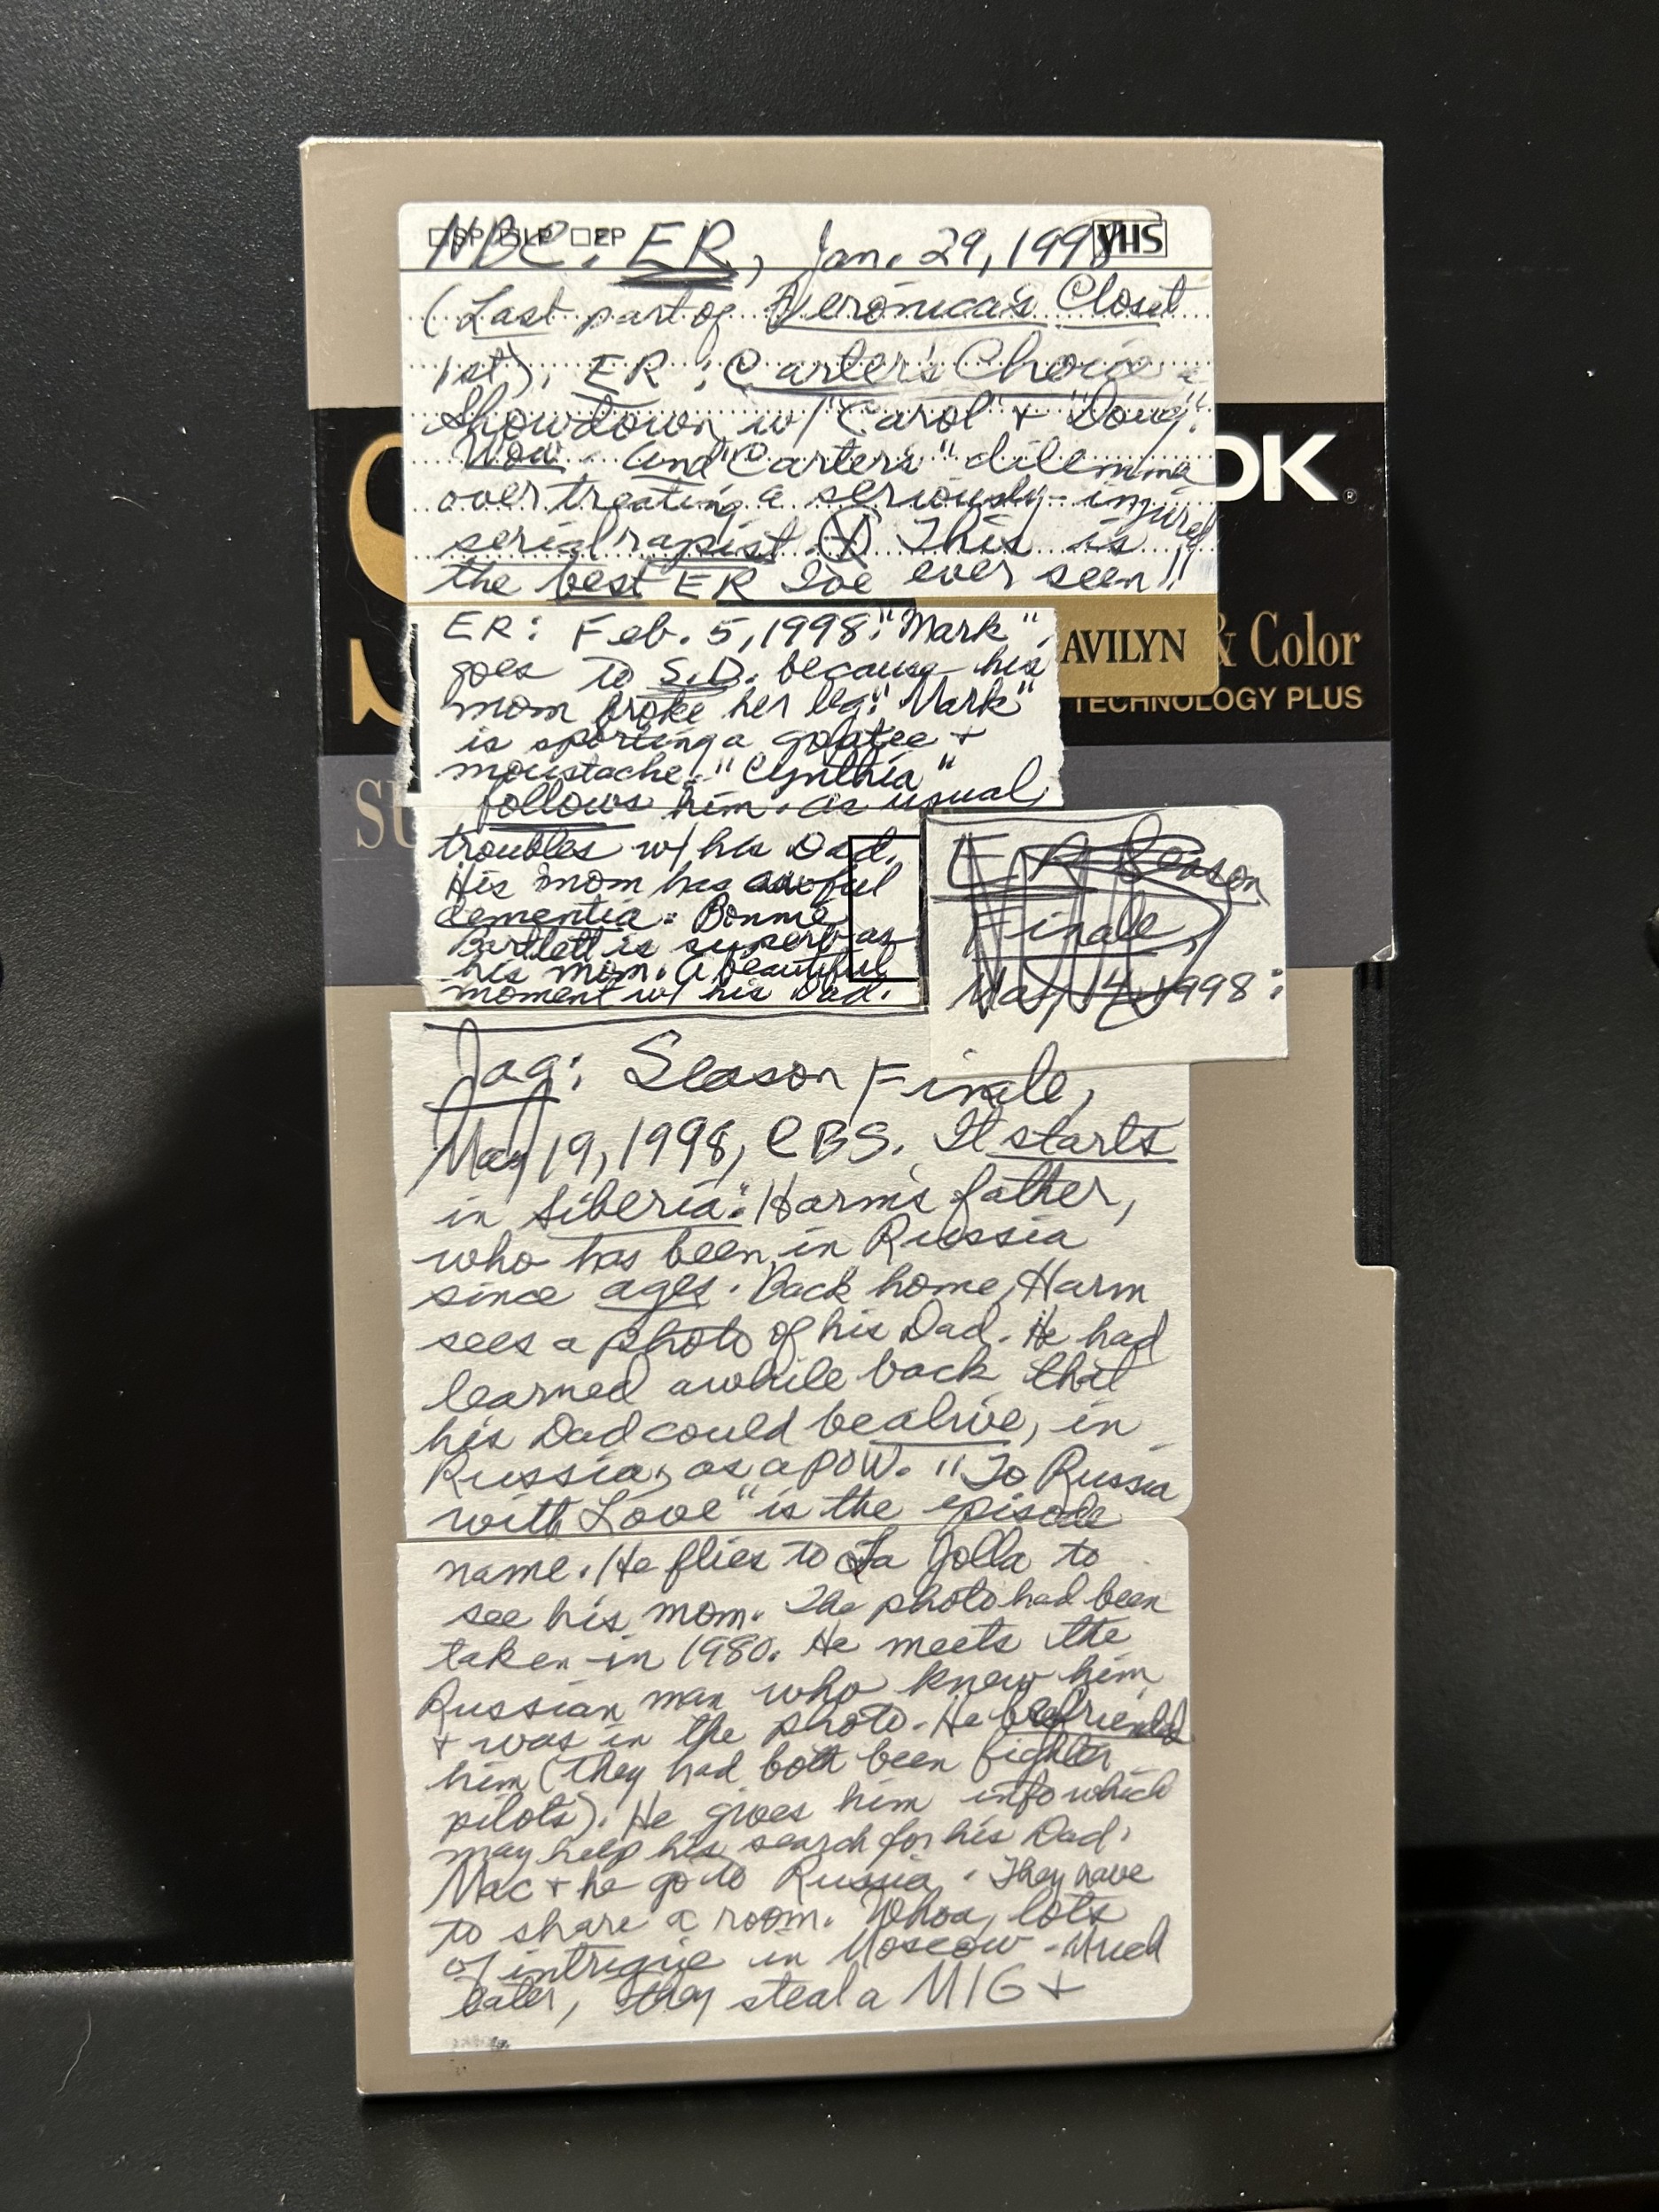 □SP □SLP □EP VHS
NBC: ER, Jan. 29, 1998
(Last part of Veronica's Closet
1st). ER: Carter's Choice:
Showdown w/ "Carol" + "Doug".
Wow. And "Carter's" dilemma
over treating a seriously-injured
serial rapist. This is
the best ER I've ever seen!!
DK®
ER: Feb. 5, 1998: "Mark"
goes to S.D. because his
mom broke her leg. "Mark"
is sporting a goatee +
moustache. "Cynthia"
follows him. As usual,
troubles w/ his Dad.
His mom has awful
dementia. Bonnie
Bartlett is superb as
his mom. A beautiful
moment w/ his Dad.
AVILYN & Color
TECHNOLOGY PLUS
S
SU
ER Season
Finale,
May 14, 1998:
Jag: Season Finale,
May 19, 1998, CBS. It starts
in Siberia: Harm's father,
who has been in Russia
since ages. Back home, Harm
sees a photo of his Dad. He had
learned awhile back that
his Dad could be alive, in
Russia, as a POW. "To Russia
with Love" is the episode
name. He flies to La Jolla to
see his mom. The photo had been
taken in 1980. He meets the
Russian man who knew him
+ was in the photo. He befriended
him (they had both been fighter
pilots). He gives him info which
may help his search for his Dad.
Mac + he go to Russia. They have
to share a room. Whoa, lots
of intrigue in Moscow - Much
later, they steal a MIG +